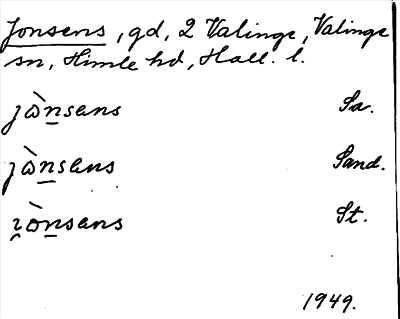 Jonsens, gd, 2 Valinge, Valinge
sn, Himle hd, Hall. l.
jὼnsens Sa.
jὼnsens Sand.
ɿònsens St.
1949.